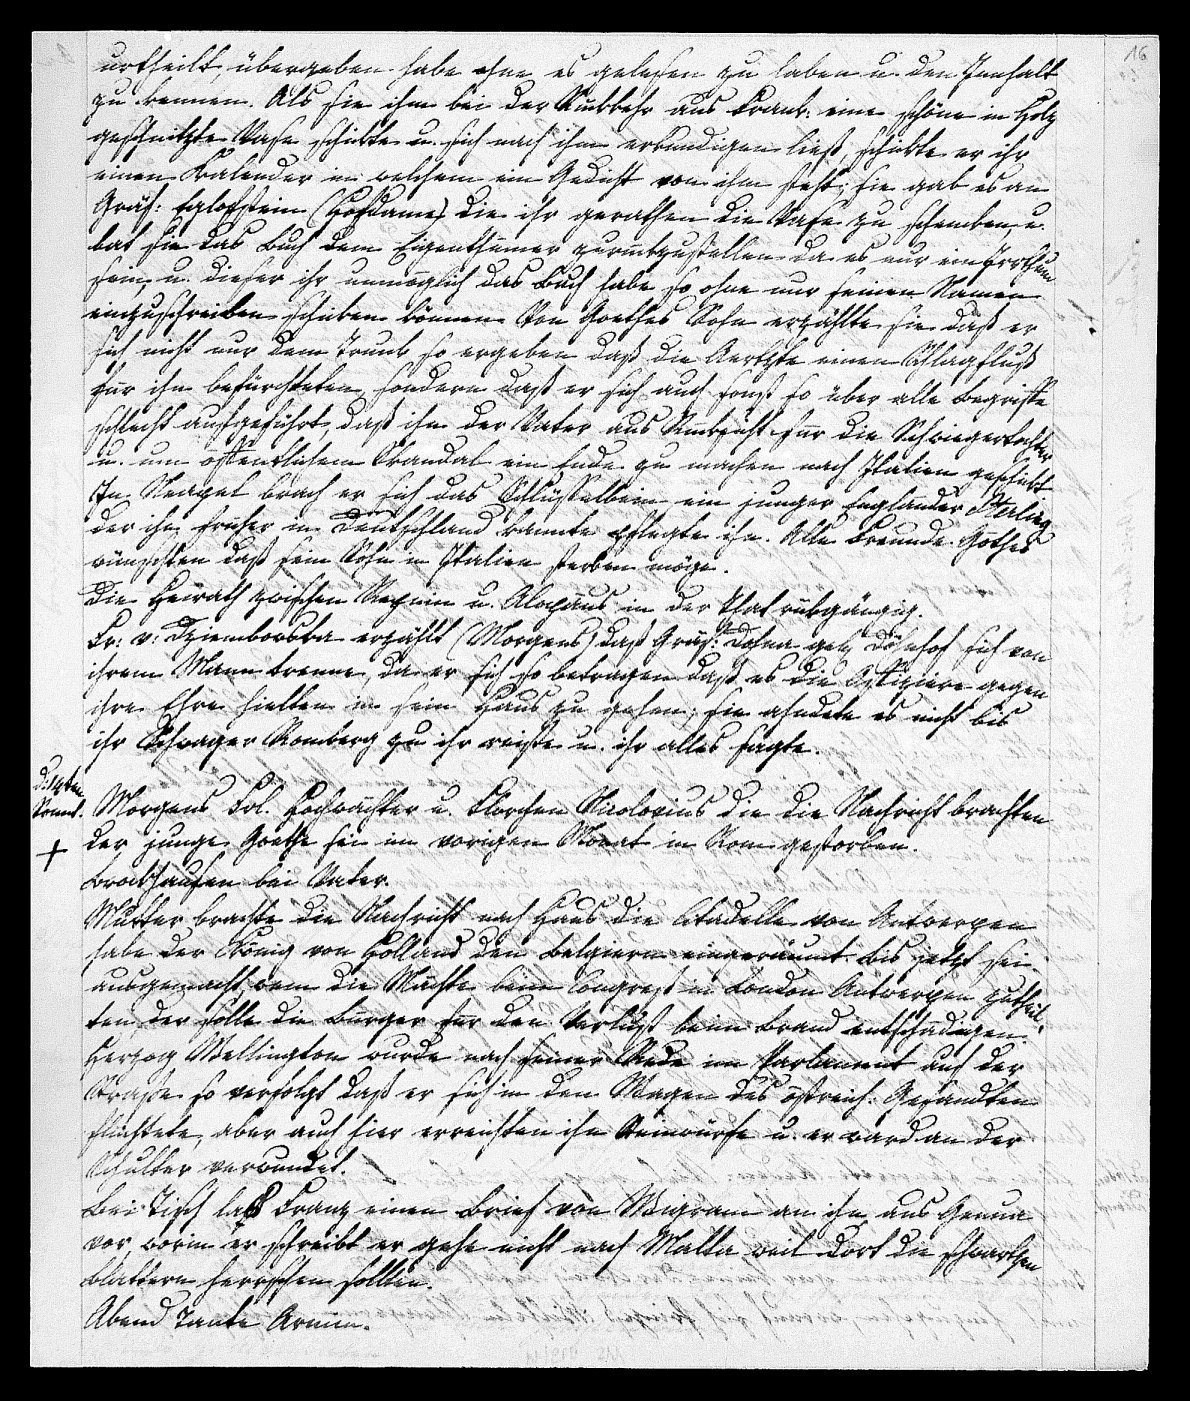 16
urtheilt, übergeben habe ohne es gelesen zu haben u. den Innhalt
zu kennen. Als sie ihm bei der Rückkehr aus Frank: eine schöne in Holz
geschnitzte Vase schickte u. sich nach ihm erkundigen ließ, schickte er ihr
einen Kalender in welchem ein Gedicht von ihm steht; sie gab es an
Gräf: Egloffstein (Hofdame) die ihr gerathen die Vase zu schenken, u.
bat sie das Buch dem Eigenthümer zurückzustellen da es nur ein Irrthum
sein, u. dieser ihr unmöglich das Buch habe so ohne nur seinen Namen
einzuschreiben schicken können. Von Goethes Sohn erzählte sie daß er
sich nicht nur dem Trunk so ergeben daß die Aertzte einen Schlagfluß
für ihn befürchteten, sondern daß er sich auch sonst so über alle Begriffe
schlecht aufgeführt, daß ihn der Vater aus Rücksicht für die Schwiegertochter
u. um öffentlichem Skandal ein Ende zu machen nach Italien geschickt
In Neapel brach er sich das Schlüsselbein, ein junger Engländer Sterling
der ihn früher in Deutschland kannte pflegte ihn. Alle Freunde Göthes
wünschten daß sein Sohn in Italien sterben möge.
Die Heirath zwischen Repnin u. Alopäus in der That rückgängig.
Fr: v: Dziembowska erzählt (Morgens) daß Gräf: Dohna geb. Dönhof sich von
ihrem Mann trenne, da er sich so betragen daß es die Offiziere gegen
ihre Ehre hielten in sein Haus zu gehen; sie ahndete es nicht bis
ihr Schwager Romberg zu ihr reiste u. ihr alles sagte.
d: 14ten
Sonnt. Morgens Frl. Hochwächter u. Clärchen Nicolovius die die Nachricht brachten
+ der junge Goethe sei im vorigen Monat in Rom gestorben.
Brockhausen bei Vater.
Mutter brachte die Nachricht nach Haus die Citadelle von Antwerpen
habe der König von Holland den Belgiern eingeräumt bis jetzt sei
ausgemacht, wem die Mächte beim Congreß in London Antwerpen zutheil-
ten, der solle die Bürger für den Verlust beim Brand entschädigen.
Herzog Wellington wurde nach seiner Rede im Parlament auf der
Straße so verfolgt daß er sich in den Wagen des östreich: Gesandten
flüchtete, aber auch hier erreichten ihn Steinwürfe u. er ward an der
Schulter verwundet.
Bei Tisch las Franz einen Brief von Wigram an ihn aus Genua
vor, worin er schreibt er gehe nicht nach Malta weil dort die schwartzen
Blattern herrschen sollen.
Abend Tante Armin.